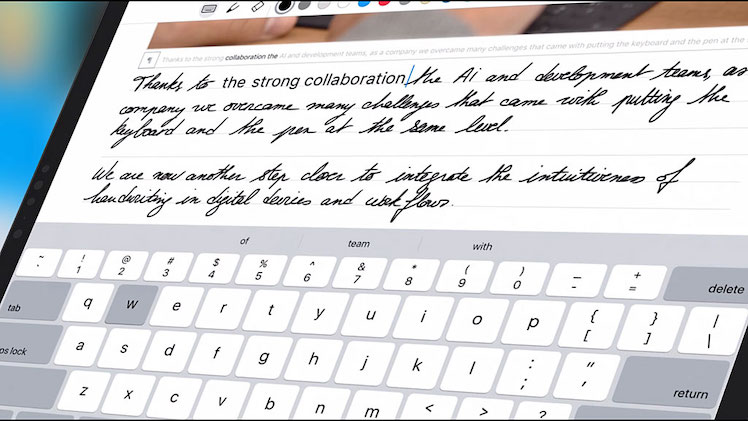 Thanks to the strong collaboration the AI and development teams, as a company we overcame many challenges that came with putting the keyboard and the pen at the
Thanks to the strong collaboration the Ai and development teams, as
company we overcame many challenges that came with putting the
keyboard and the pen at the same level.
We are now another step closer to integrate the intuitiveness of
handwriting in digital devices and workflows.
of team with
~ ! @ # $ % ^ & * ( ) _ +
` 1 2 3 4 5 6 7 8 9 0 - = delete
tab q w e r t y u i o p { [ } ] | \
ps lock a s d f g h j k l : ; " ' return
z x c v b n m < > ?